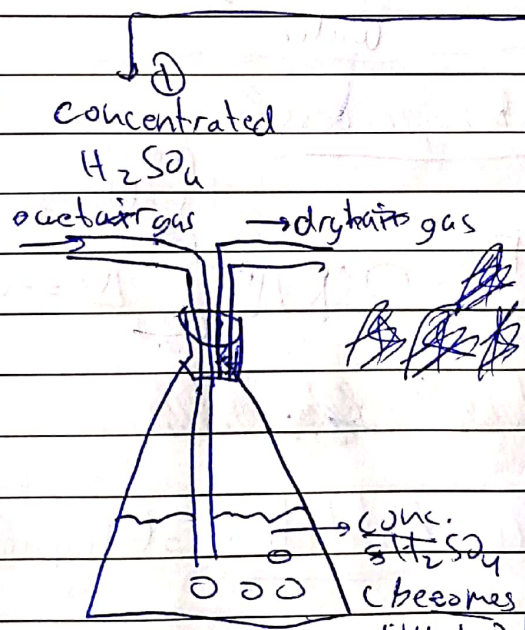 ①
concentrated
H₂SO₄
gas → dry gas
→ conc.
H₂SO₄
(becomes